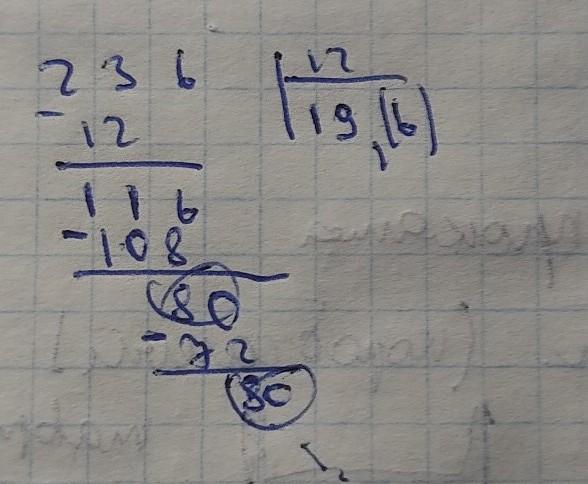 236 12
- 12 19,(6)
116
- 108
80
- 72
80